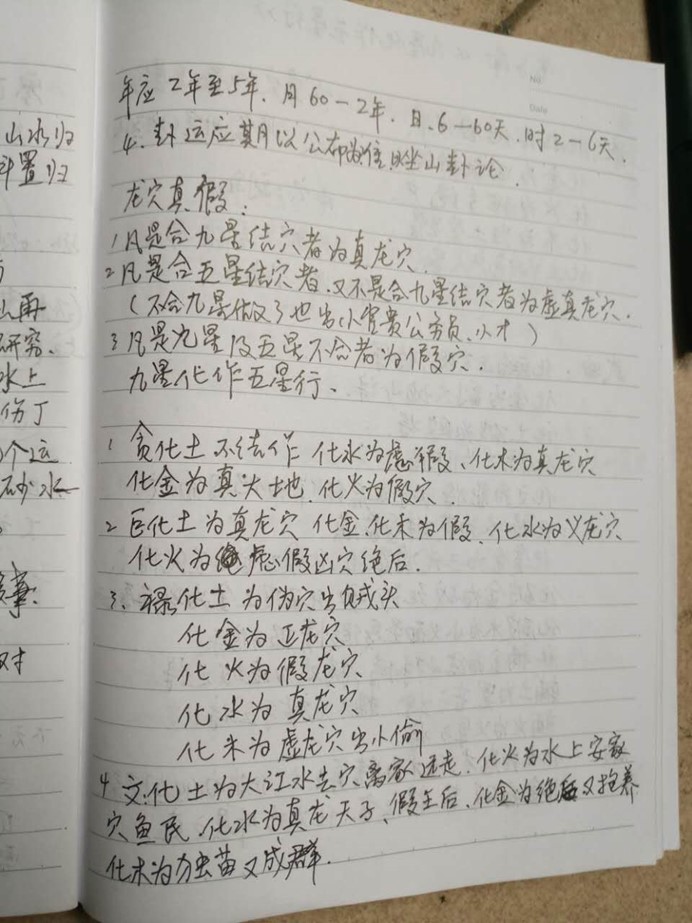 山水归
年应2年至5年、月60-2年、日、6-60天、时2-6天、
4、卦运应期以公布为准,以坐山卦论、
龙穴真假:
1凡是合九星结穴者为真龙穴、
2凡是合五星结穴者、又不是合九星结穴者为虚真龙穴、
(不合九星做了也出小官贵公务员、小才)
3凡是九星及五星不合者为假穴、
九星化作五星行、
1 贪化土不结作 化水为虚假、化木为真龙穴
化金为真大地 化火为假穴、
2 巨化土为真龙穴 化金、化木为假、化水为义龙穴
化火为虚假凶穴绝后、
3、禄化土 为伪穴出贼头
化金为正龙穴
化火为假龙穴
化水为真龙穴
化木为虚龙穴出小偷
4 文化土为大江水去穴离家远走、化火为水上安家
穴鱼民、化水为真龙天子、假王后、化金为绝后又抱养
化木为苗又成群、
再
研究、
水上
伤丁
个运
砂水
对